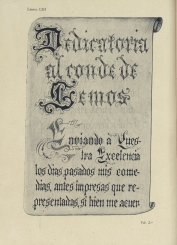 Dedicatoria
al conde de
Lemos
Enviando à Vues-
tra Excelencia
los días pasados mis come-
dias, antes impresas que re-
presentadas, si bien me acuer-